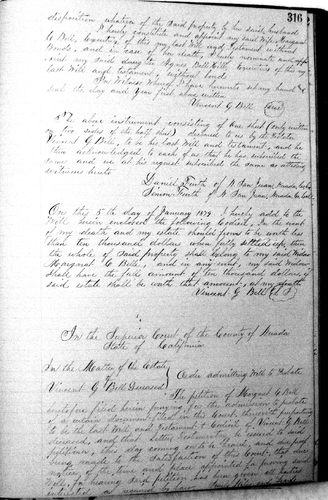 316
disposition whatever of the said property by her said husband
I hereby constitute and appoint my said wife Margaret
G Bell, Executrix of this my last Will and Testament without
Bonds, and in case of her death I hereby nominate and app-
oint my said daughter Agnes Bell Executrix of this my
last Will and testament, without bonds
In Witness Whereof I have hereunto set my hand &
seal the day and year first above written
Vincent G Bell (Seal)
The above instrument consisting of one sheet (only written
on two sides of the half sheet) declared to us by the testator
Vincent G Bell, to be his last Will and testament, and he
then acknowledged to each of us that he has subscribed the
same and we at his request subscribed the same as attesting
witnesses hereto
Daniel Finth of N San Juan, Nevada Co Cal
Simon Finth of N San Juan, Nevada Co Cal
On this 5th day of January 1879 I hereby add to the
Will herein enclosed the following Codicil. In the event
of my death and my estate should prove to be worth less
than ten thousand dollars when fully settled up, then
the whole of said property shall belong to my said Widow
Margaret G Bell, and in any event my said Widow
shall have the full amount of ten thousand dollars if
said estate shall be worth that amount, at my death
Vincent G Bell (L S)
In the Superior Court of the County of Nevada
State of California
In the Matter of the Estate
of
Vincent G Bell Deceased
Order admitting Will to Probate
The petition of Margaret G Bell
heretofore filed herein praying for the admission to probate
of a certain document filed in this Court, therewith purporting
to be the last Will and Testament & Codicil of Vincent G Bell
deceased, and that Letters testamentary be issued to said
petitioner, this day coming on to be heard, and due proof
being made to the satisfaction of this Court, that due
notice of the time and place appointed for proving said
Will, & for hearing said petition has been given all parties
interested as required by